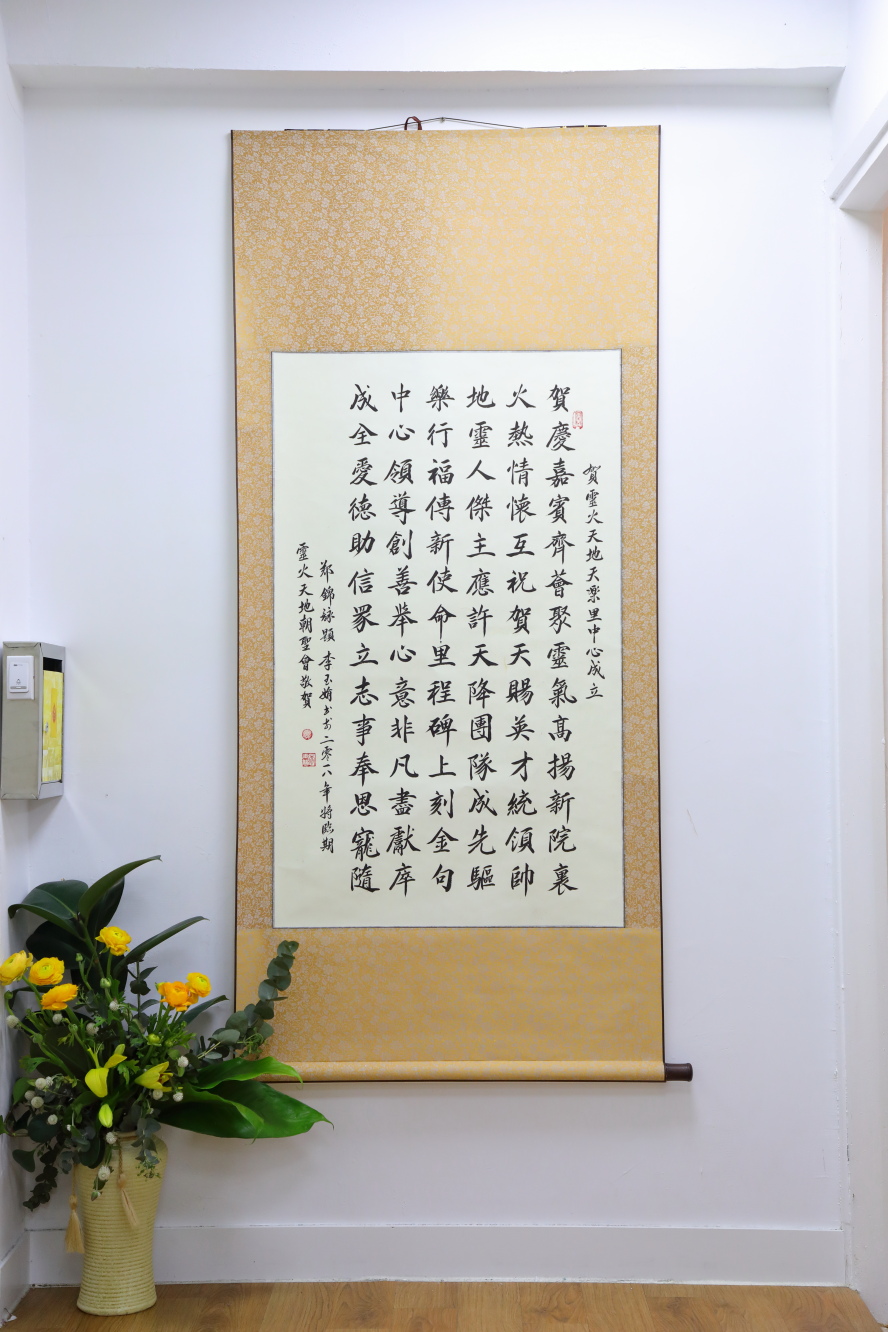 賀靈火天地天樂里中心成立
賀慶嘉賓齊薈聚靈氣高揚新院裏
火熱情懷互祝賀天賜英才統領帥
地靈人傑主應許天降團隊成先驅
樂行福傳新使命里程碑上刻金句
中心領導創善舉心意非凡盡獻卒
成全愛德助信眾立志事奉恩寵隨
鄭錦詠顕 李玉嫦書於二零一八年將臨期
靈火天地朝聖會敬賀